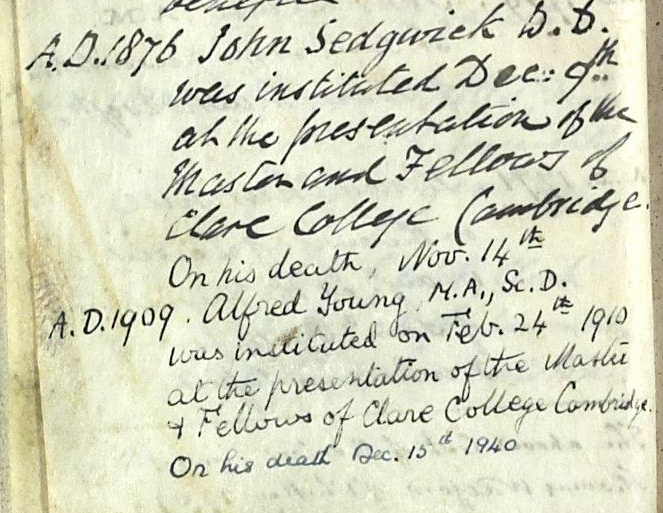 benefice
A.D.1876 John Sedgwick D.D.
was instituted Dec: 9th
at the presentation of the
Master and Fellows of
Clare College Cambridge.
On his death, Nov. 14th
A.D.1909. Alfred Young, M.A., Sc.D.
was instituted on Feb. 24th 1910
at the presentation of the Master
& Fellows of Clare College Cambridge.
On his death Dec. 15th 1940